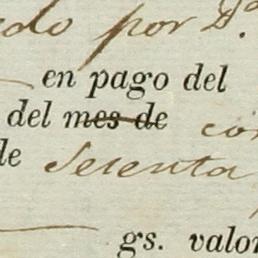 por D.ª
en pago del
del mes de
de Setenta
gs. valor